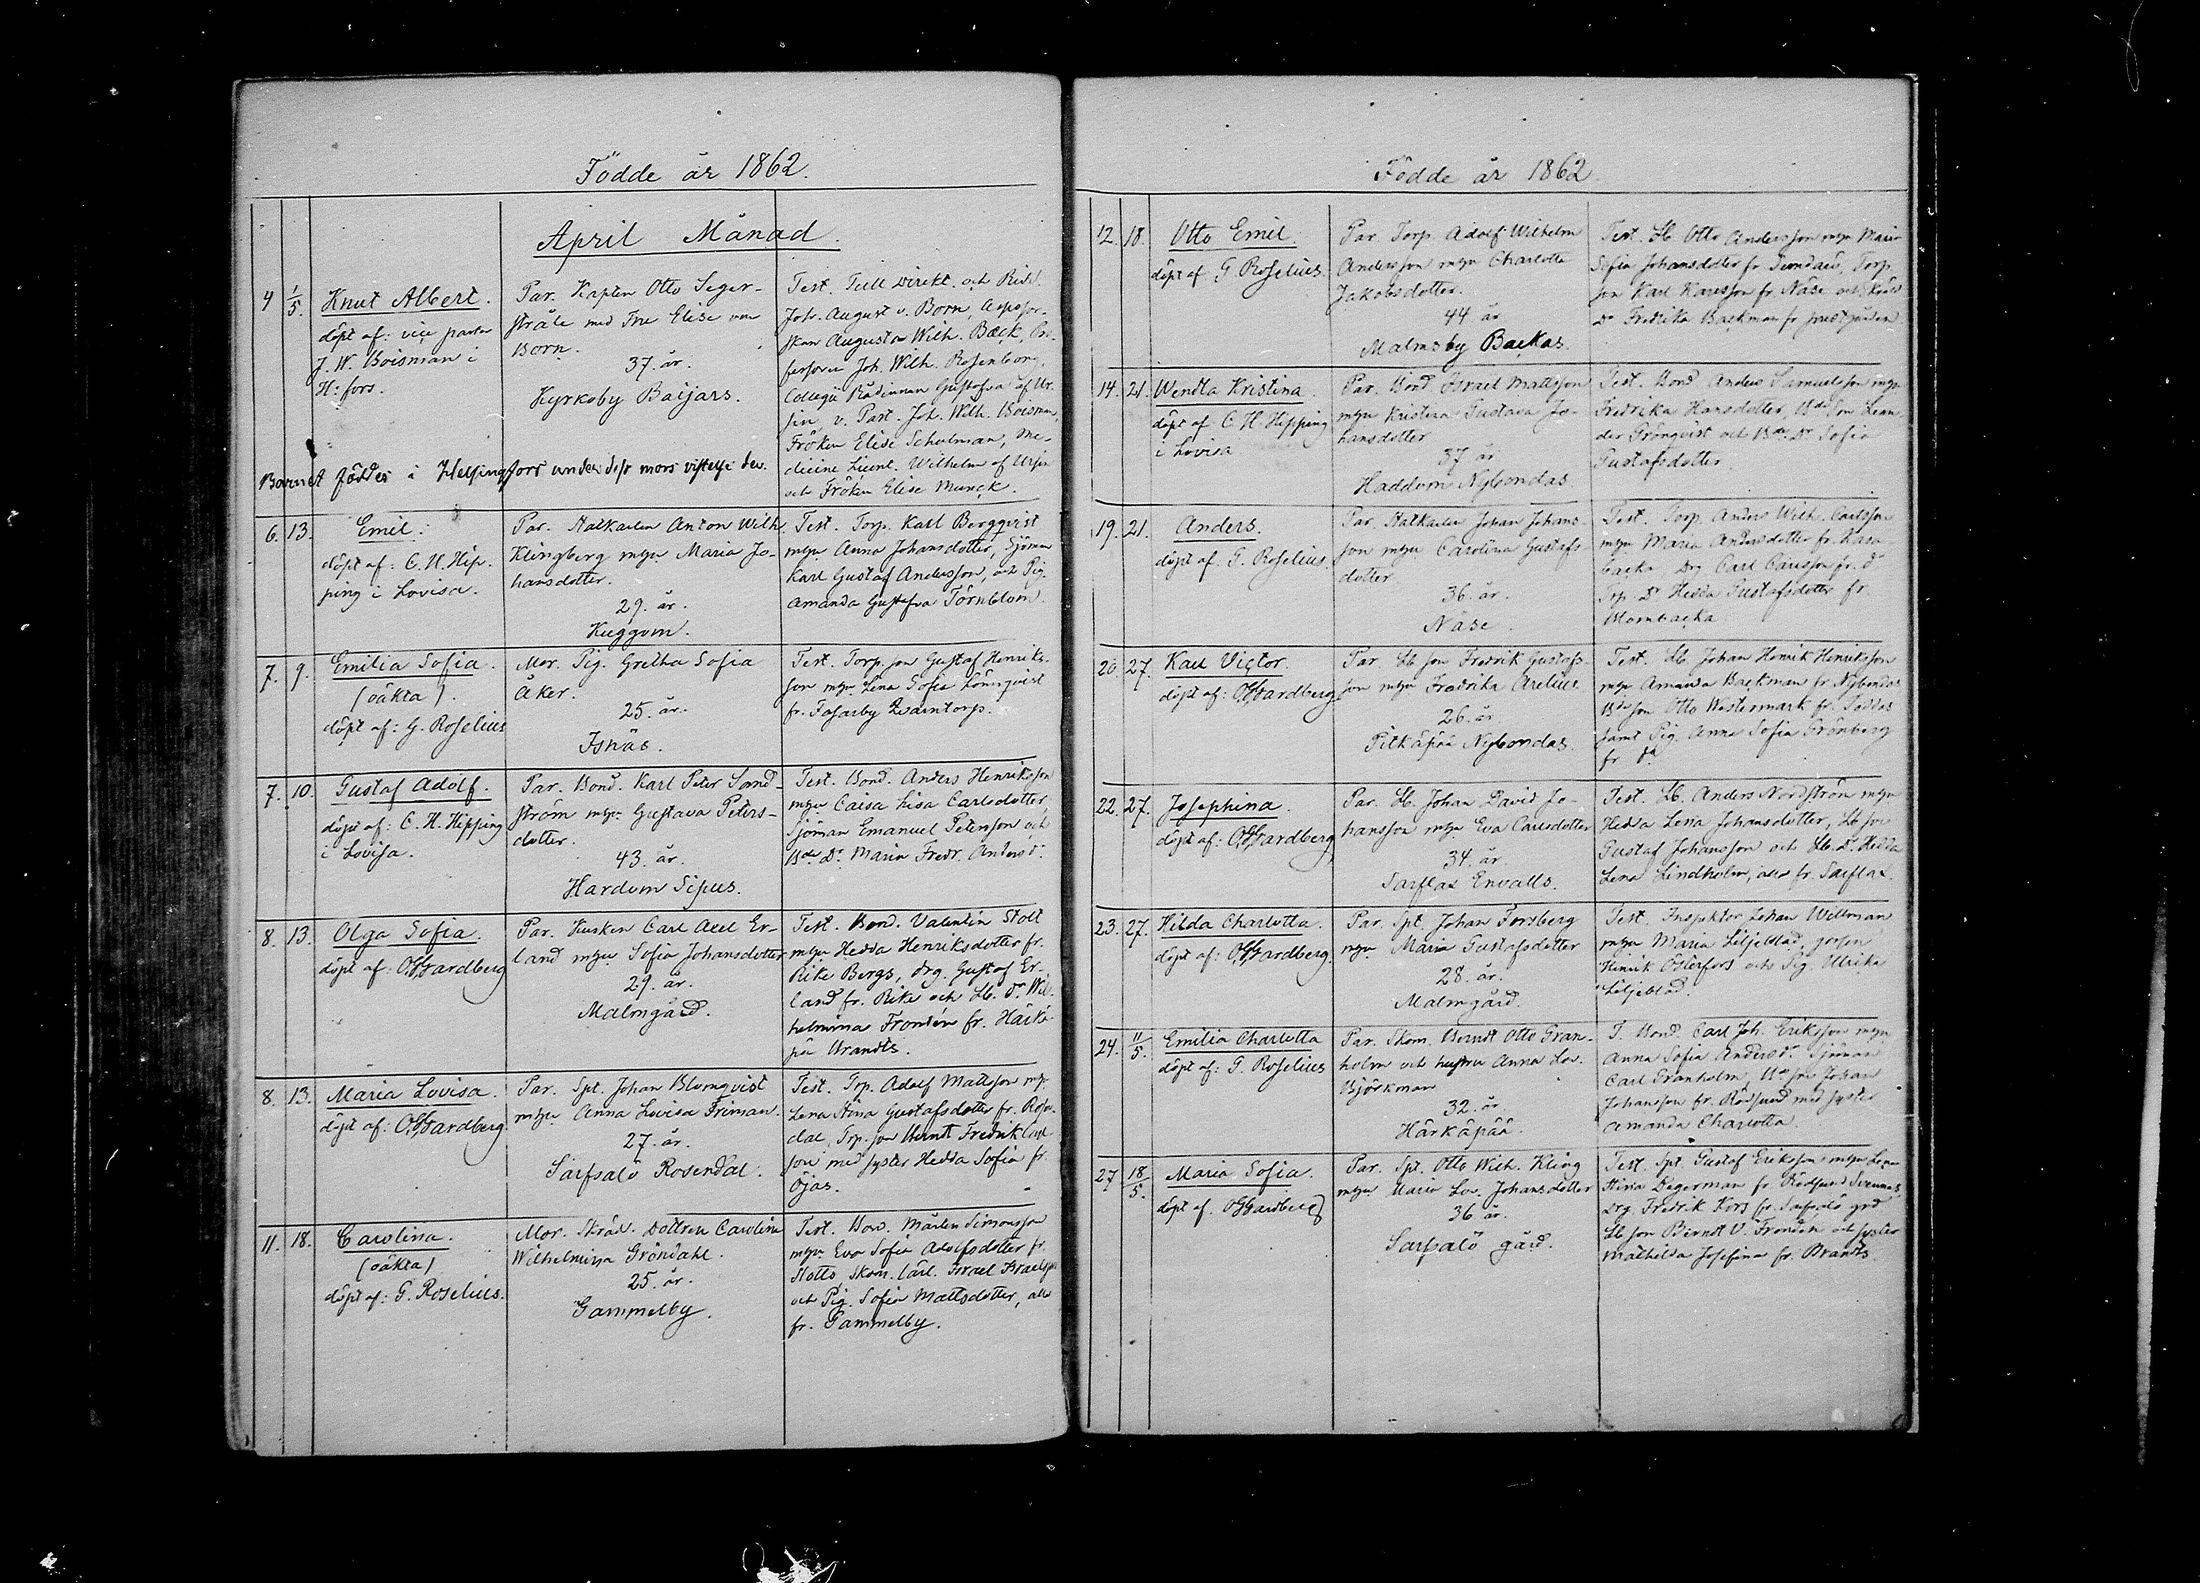 Födde år 1862.
April Månad.
4 1/5. Knut Albert.
döpt af: vice pastor
J. W. Boisman i
H:fors.
Par. Kapten Otto Seger-
stråle med Fru Elise von
Born.
37. år.
Kyrkoby Baijars.
Test. Tull Direkt. och Ridd.
Joh. August v. Born, Assessor-
skan Augusta Wilh. Bæck,
Joh. Wilh. Rosenborg,
Collegii Rådinnan Gustafva af Ur-
sin, v. Past. Joh. Wilh. Boisman,
Fröken Elise Schulman, Me-
dicine Licent. Wilhelm af Ursin
och Fröken Elise Munck.
Barnet föddes i Helsingfors under dess mors vistelse der.
6. 13. Emil.
döpt af: C. H. Hip-
ping i Lovisa.
Par. Hatkarlen Anton Wilh.
Klingberg mhu Maria Jo-
hansdotter.
29. år.
Kuggom.
Test. Torp. Karl Bergqvist
mhu Anna Johansdotter, Sjöman
Karl Gustaf Andersson, och Pig.
Amanda Gustafva Törnblom.
7. 9. Emilia Sofia.
(oäkta).
döpt af: G. Roselius
Mor. Pig. Gretha Sofia
Åker.
25. år.
Isnäs.
Test. Torp. son Gustaf Henriks-
son mhu Lena Sofia Lönnqvist
fr. Tasarby Qvarntorp.
7. 10. Gustaf Adolf.
döpt af: C. H. Hipping
i Lovisa.
Par. Bond. Karl Peter Sand-
ström mhu Gustava Peters-
dotter.
43. år.
Hardom Sipus.
Test. Bond. Anders Henriksson
mhu Caisa Lisa Carlsdotter,
Sjöman Emanuel Petersson och
Bde Dr Maria Fredr. Andersdr
8. 13. Olga Sofia.
döpt af: O. Gardberg
Par. Kusken Carl Axel Er-
land mhu Sofia Johansdotter
29. år.
Malmgård.
Test. Bond. Valentin Stolt
mhu Hedda Henriksdotter fr.
Rike Bergs, drg. Gustaf Er-
land fr. Rike och Sb. Dr Wil-
helmina Frondén fr. Härkä-
pä Brandts.
8. 13. Maria Lovisa.
döpt af: O. Gardberg.
Par. Spt. Johan Blomqvist
mhu Anna Lovisa Friman.
27. år.
Sarfsalö Rosendal.
Test. Trp. Adolf Mattsson mhu
Lena Stina Gustafsdotter fr. Rosen-
dal, Trp. son Berndt Fredrik Carl-
son med syster Hedda Sofia fr.
Öjas.
11. 18. Carolina.
(oäkta)
döpt af: G. Roselius.
Mor. Skräd. Dottren Carolina
Wilhelmina Gröndahl.
25. år.
Gammelby.
Test. Bond. Mårten Simonsson
mhu Eva Sofia Adolfsdotter fr.
Skotto, Skom. lärl. Israel Israelsson
och Pig. Sofia Mattsdotter, alla
fr. Gammelby.
Födde år 1862.
12. 18. Otto Emil
döpt af G Roselius.
Par. Torp Adolf Wilhelm
Andersson mhu Charlotta
Jakobsdotter.
44 år
Malmsby Backas.
Test. Sb. Otto Andersson mhu Maria
Sofia Johansdotter fr Torp.
son Karl Karlsson fr. Näse och
Dr Fredrika Backman fr prestgården
14. 21. Wendla Kristina.
döpt af C. H. Hipping
i Lovisa
Par. Bond Israel Mattsson
mhu Kristina Gustava Jo-
hansdotter
37 år
Haddom Nybondas
Test. Bond Anders Samuelsson mhu
Fredrika Hansdotter, Bde son Lean-
der Grönqvist och Bde Dr Sofia
Gustafsdotter
19. 21. Anders.
döpt af. G. Roselius.
Par. Hatkarlen Johan Johans-
son mhu Carolina Gustafs-
dotter
36. år.
Näse.
Test. Torp. Anders Wilh. Carlsson
mhu Maria Andersdotter fr. Kasa-
backa Drg Carl Carlsson fr. d
Trp. Dr Hedda Gustafsdotter fr
Blombacka
20. 27. Karl Victor.
döpt af: O. Gardberg
Par. Sb son Fredrik Gustafs-
son mhu Fredrika Arelius
26. år.
Pitkäpää Nybondas.
Test. Sb. Johan Henrik Henriksson
mhu Amanda Backman fr Nybondas
Bde son Otto Westermark fr. Toddas
samt Pig. Anna Sofia Grönberg
fr do
22. 27. Josephina.
döpt af: O. Gardberg
Par. Sb. Johan David Jo-
hansson mhu Eva Carlsdotter
34. år.
Sarflax Envalls.
Test. Sb. Anders Nordström mhu
Hedda Lena Johansdotter, Sb son
Gustaf Johansson och Sb. Dr Hedda
Lena Lindholm, alla fr. Sarflax.
23. 27. Hilda Charlotta.
döpt af: O. Gardberg.
Par. Spt. Johan Forsberg
mhu Maria Gustafsdotter
28. år.
Malmgård.
Test. Inspektor Johan Willman
mhu Maria Liljeblad,
Henrik Österfors och Pig. Ulrika
Liljeblad.
24. 11/5. Emilia Charlotta
döpt af: G. Roselius
Par. Skom. Berndt Otto Gran-
holm och hustru Anna Lov.
Björkman
32. år
Härkäpää.
T. Bond Carl Joh. Eriksson mhu
Anna Sofia Andersdr Sjöman
Carl Granholm, Bde son Johan
Johansson fr. Rödsund med syster
Amanda Charlotta.
27 18/5. Maria Sofia.
döpt af. O. Gardberg
Par. Spt. Otto Wilh. Kling
mhu Maria Lov. Johansdotter
36 år.
Sarfsalö gård.
Test. Spt. Gustaf Eriksson mhu Lena
Stina Degerman fr Rödsund Svennas
Drg. Fredrik Kors fr. Sarfsalö grd
Sb son Berndt V. Frondén och syster
Mathilda Josefina fr. Brandts